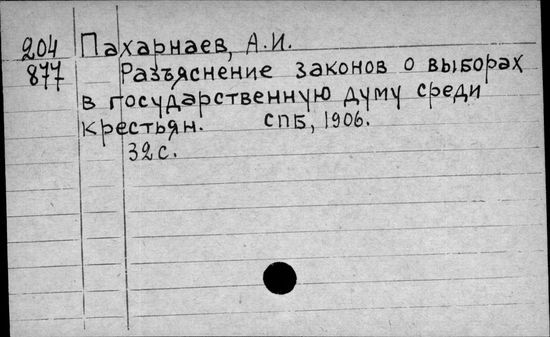 204 Пахарнаев, А.И.
877 Разъяснение законов о выборах
в государственную думу среди
крестьян. СПБ, 1906.
32 с.